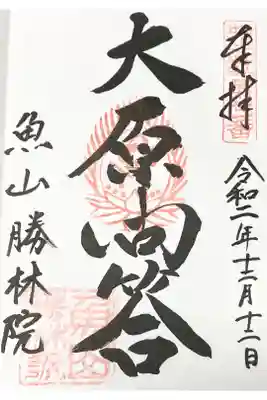 奉拝
令和二年十二月十二日
大原问答
魚山勝林院